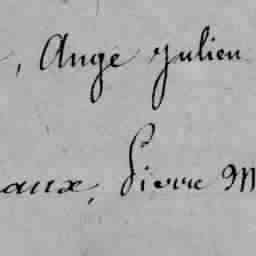 , Ange Julien
aux, Pierre M